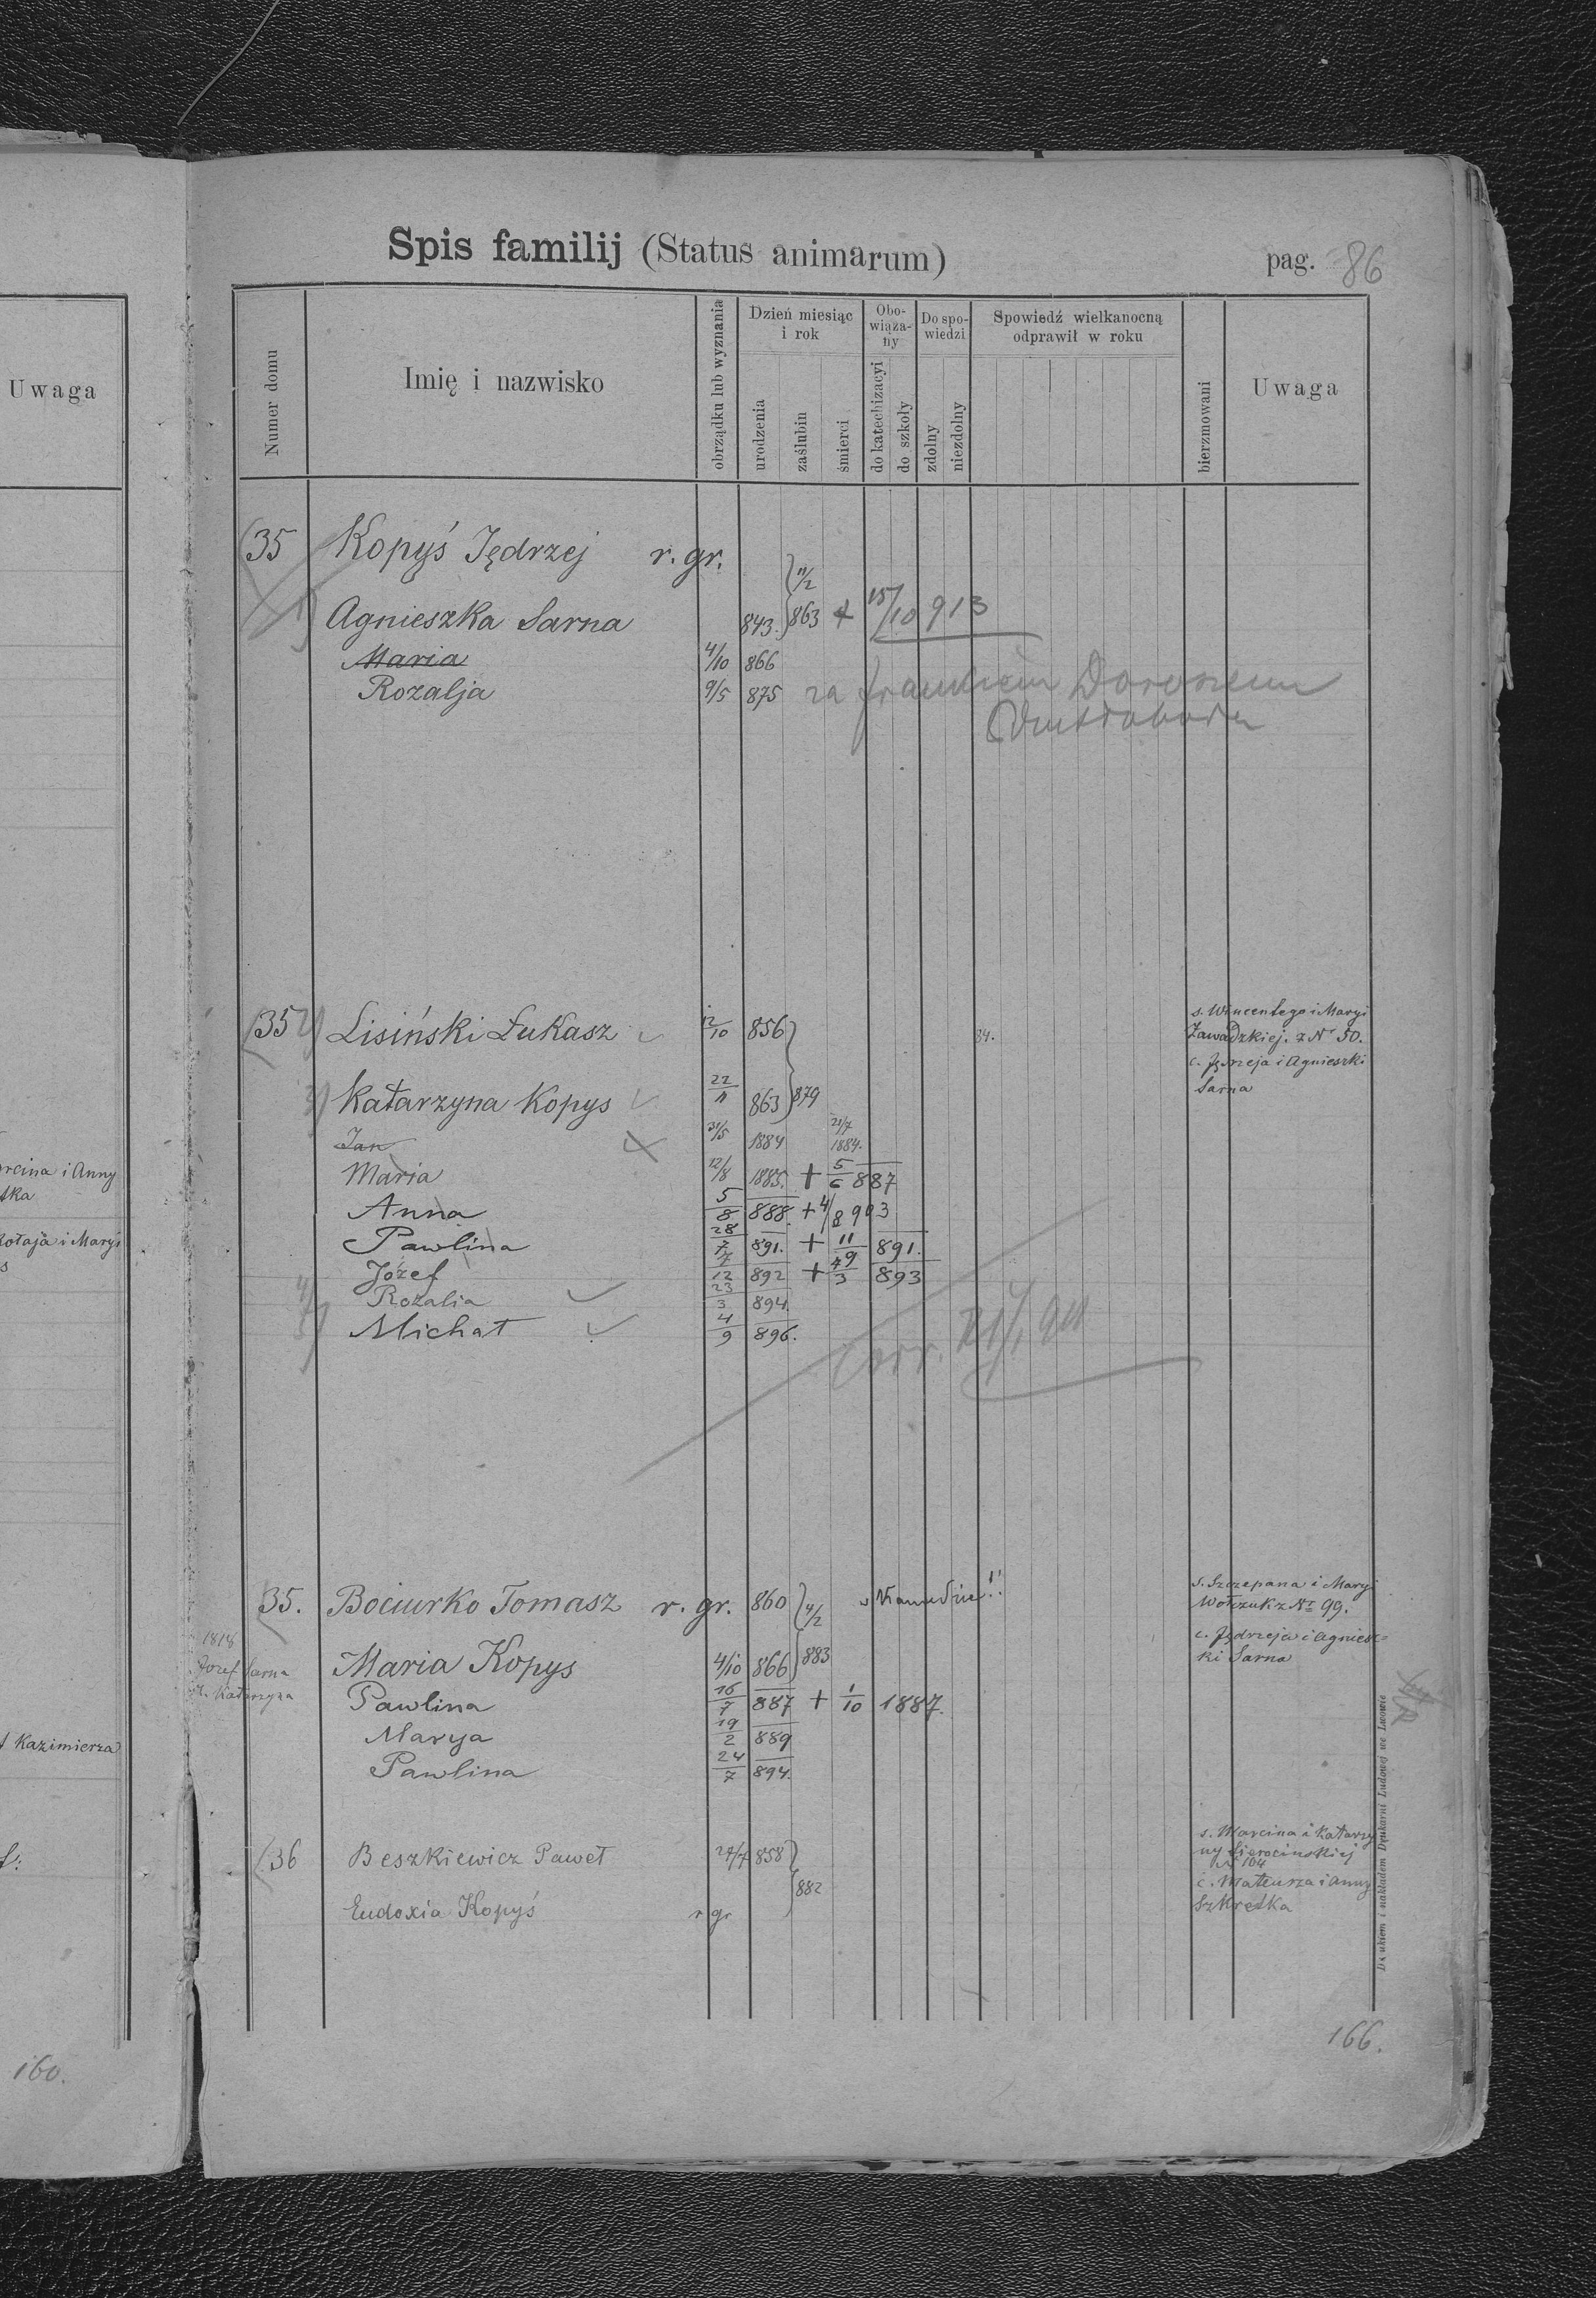 Spis familij (Status animarum)
pag. 86
Uwaga
Numer domu
Imię i nazwisko
obrządku lub wyznania
Dzień miesiąc i rok
urodzenia
zaślubin
śmierci
Obo-
wiąza-
ny
do katechizacyi
do szkoły
Do spo-
wiedzi
zdolny
niezdolny
Spowiedź wielkanocną
odprawił w roku
bierzmowani
Uwaga
35 Kopyś Jędrzej r. gr.
11/2
1) Agnieszka Sarna 843. 863 + 15/10 913
Maria 4/10 866
Rozalja 9/5 875 za
35 2) Lisiński Łukasz 12/10 856 84.
s. Wincentego i Maryi
Zawadzkiej. z Nr 50.
3) Katarzyna Kopys 22/11 863 879
c. Jędrzeja i Agnieszki
Sarna
Jan 31/5 1884 21/7 1884.
Maria 12/8 1885. + 5/6 887
Anna 5/8 888. + 4/8 903
Pawlina 28/7 891. + 11/ 891.
Józef 7/12 892 + /3 893
4) Rozalia 23/3 894.
5) Michał 4/9 896.
35. Bociurko Tomasz r. gr. 860 4/2
s. Szczepana i Maryi
Wołczuk z Nr 99.
1818
Józef Sarna
Katarzyna
Maria Kopys 4/10 866 883
c. Jędrzeja i Agniesz=
ki Sarna
Pawlina 16/7 887 + 1/10 1887.
Marya 19/2 889
Pawlina 24/7 894.
36 Beszkiewicz Paweł 27/7 858
882
s. Marcina i Katarzy
ny Sierocinskiej
Nr 104
Eudoxia Kopyś r gr
c. Mateusza i Anny
Szkretka
Kazimierza
160.
166.